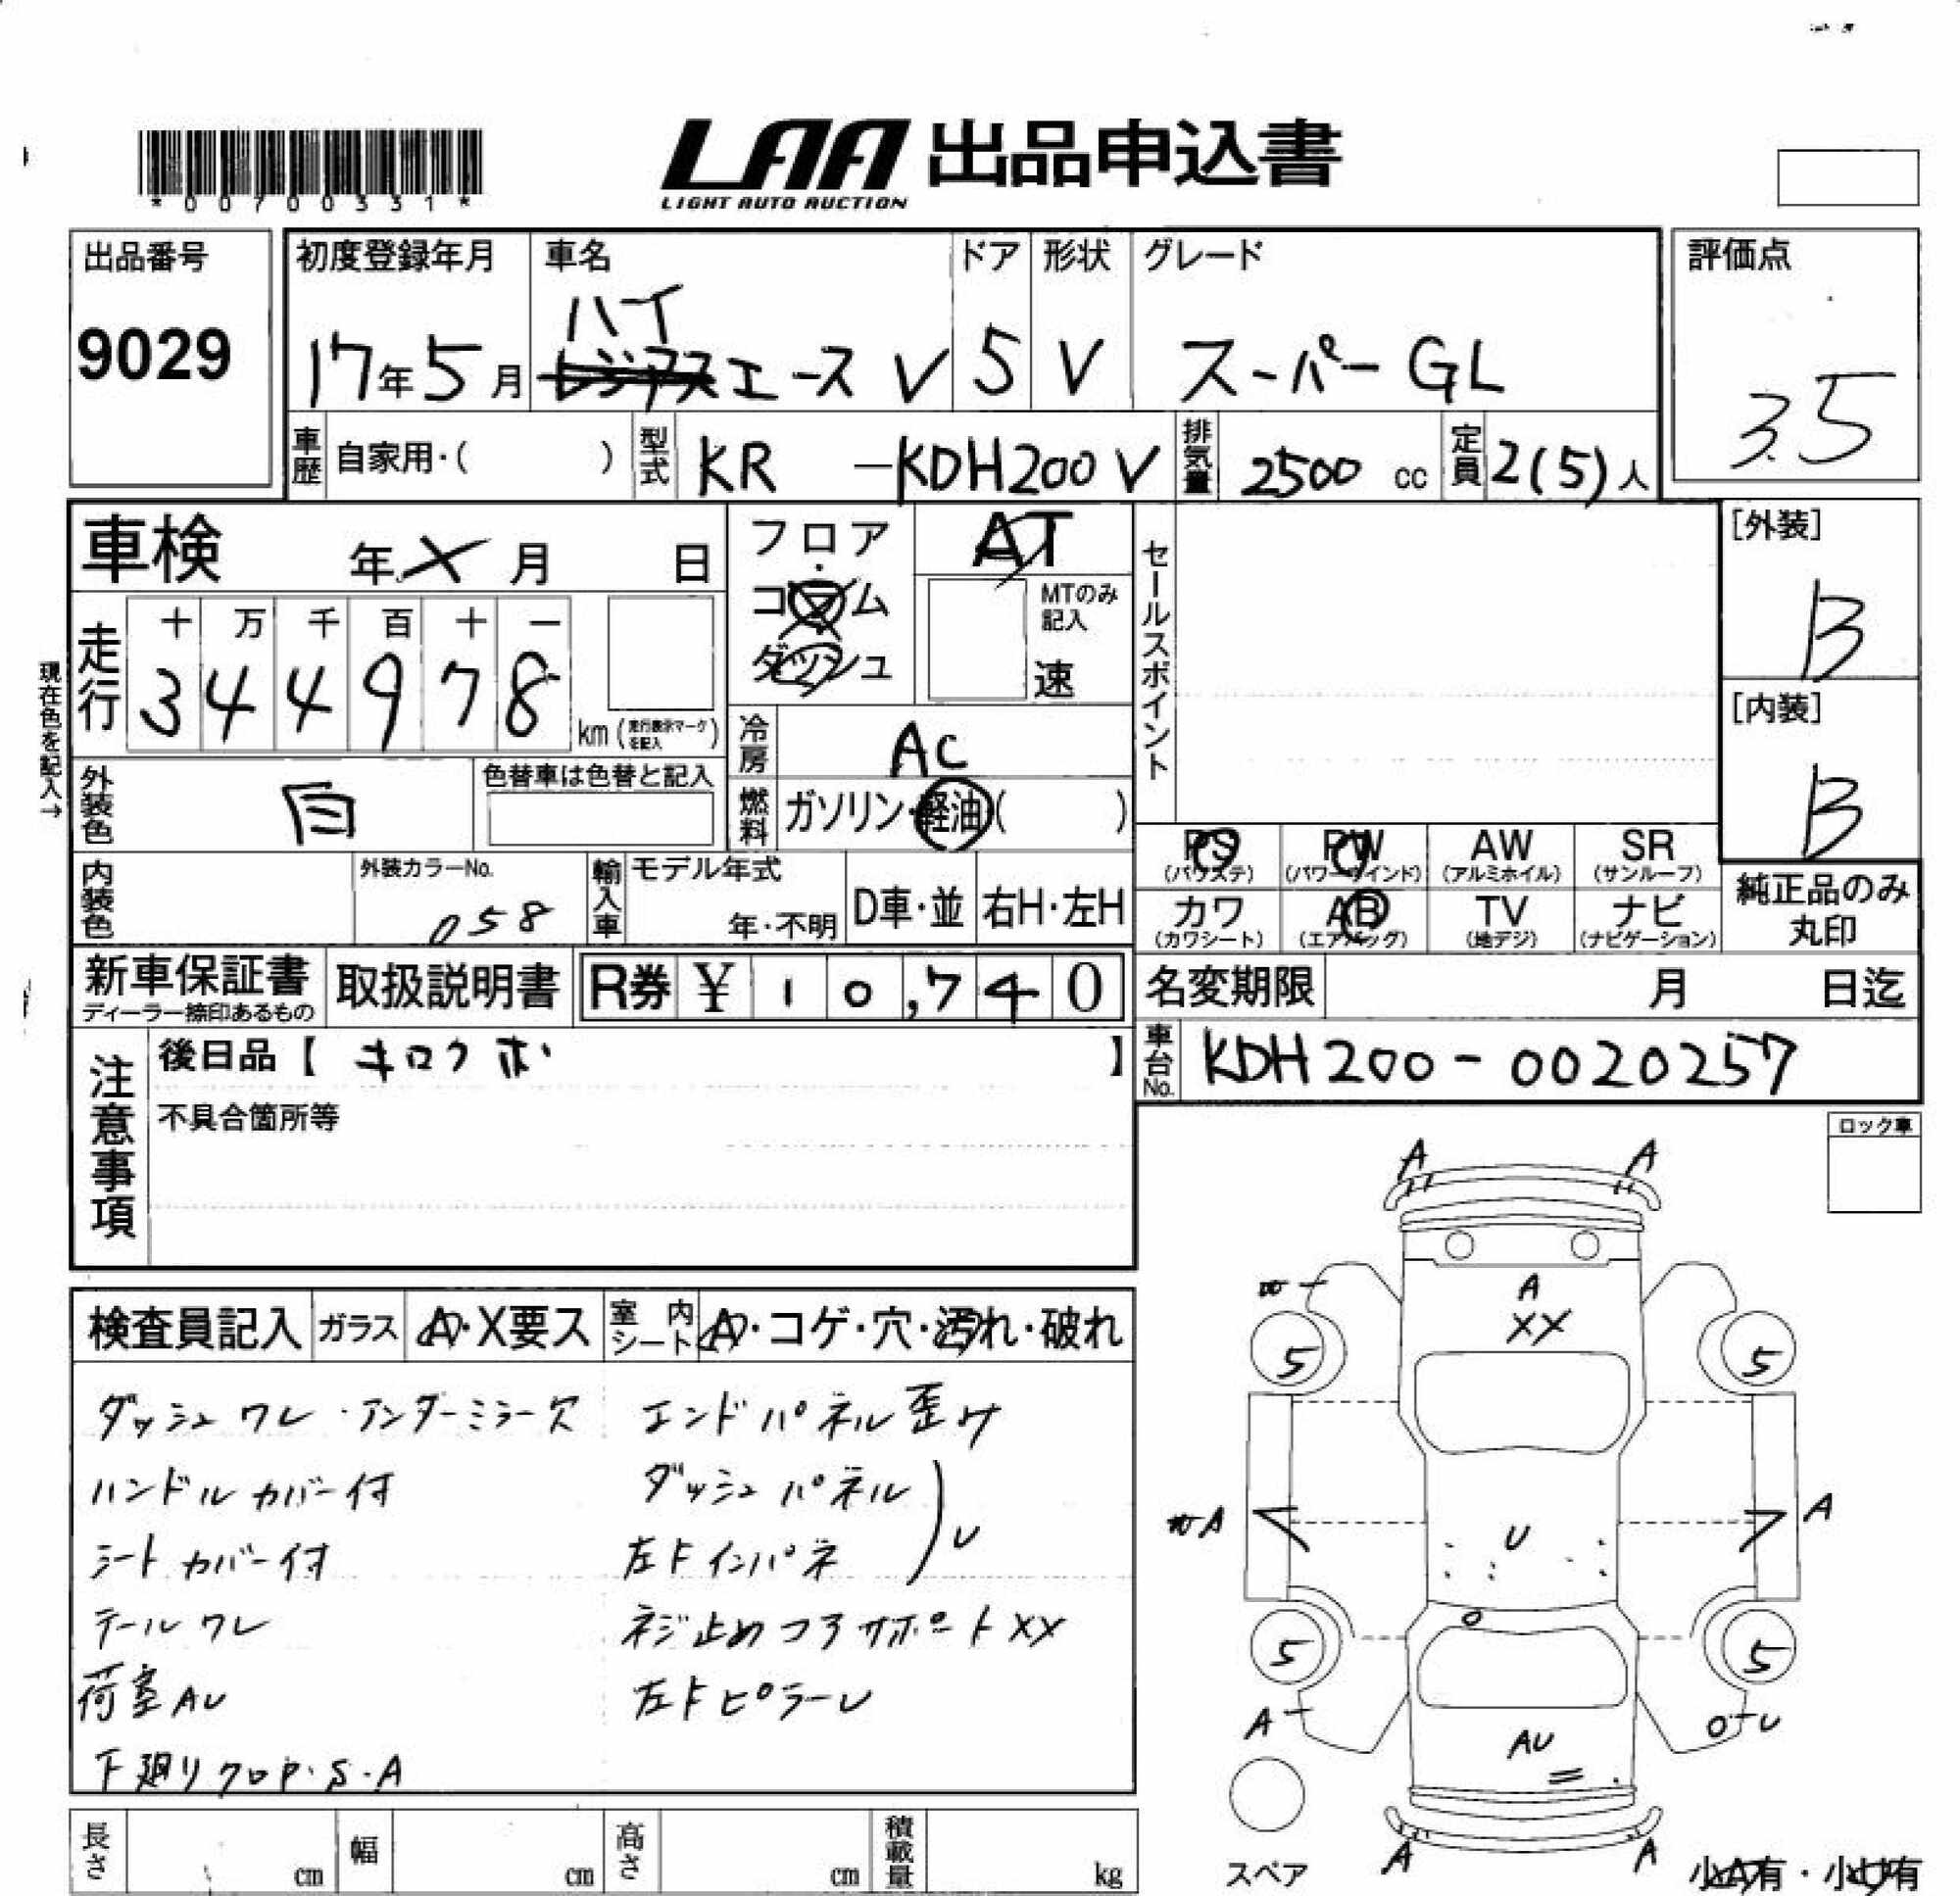 *00700331*
LAA 出品申込書
LIGHT AUTO AUCTION
出品番号
9029
初度登録年月
17年5月
車名
ハイ
レジアスエース V
ドア
5
形状
V
グレード
スーパーGL
評価点
3.5
車歴 自家用・( )
型式 KR -KDH200V
排気量 2500 cc
定員 2(5)人
車検 年 X 月 日
フロア・コラム・ダッシュ
AT
MTのみ記入
速
セールスポイント
[外装]
B
[内装]
B
現在色を記入→
走行
十 万 千 百 十 一
3 4 4 9 7 8
km (走行表示マークを記入)
冷房 AC
燃料 ガソリン・軽油( )
外装色 白
色替車は色替と記入
内装色
外装カラーNo.
058
輸入車
モデル年式
年・不明
D車・並
右H・左H
PS (パワステ)
PW (パワーウインド)
AW (アルミホイル)
SR (サンルーフ)
カワ (カワシート)
AB (エアバッグ)
TV (地デジ)
ナビ (ナビゲーション)
純正品のみ
丸印
新車保証書
ディーラー捺印あるもの
取扱説明書
R券 ¥ 10,740
名変期限 月 日迄
車台No. KDH200-0020257
注意事項
後日品【 キロクボ 】
不具合箇所等
ロック車
検査員記入
ガラス A・X要ス
室内シート A・コゲ・穴・汚れ・破れ
ダッシュワレ・アンダーミラー欠
ハンドルカバー付
シートカバー付
テールワレ
荷室AU
下廻りクロP・S・A
エンドパネル歪み
ダッシュパネル
左Fインパネ
U
ネジ止めコアサポートXX
左FピラーU
A A
A
XX
5 5
A A
U
5 5
A
U
AU
A A
スペア
小A有・小U有
長さ cm
幅 cm
高さ cm
積載量 kg